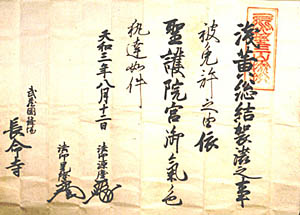 浅黄総結袈裟之事
被免許之由依
聖護院宮御氣色
執達如件
天和三年八月十二日
法印源
法印
武蔵国
長命寺